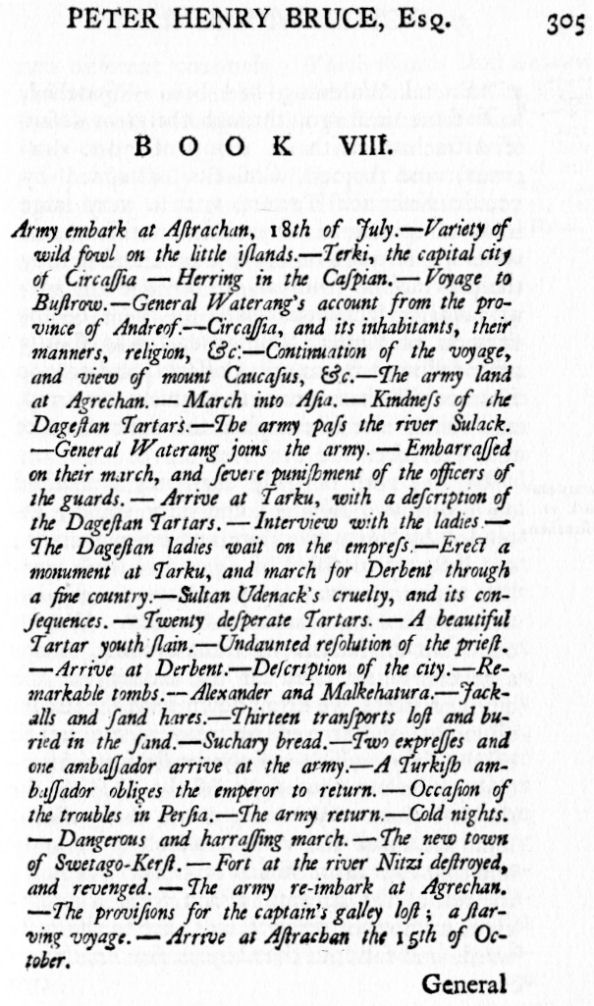 PETER HENRY BRUCE, Esq. 305
BOOK VIII.
Army embark at Aſtrachan, 18th of July.—Variety of
wild fowl on the little iſlands.—Terki, the capital city
of Circaſſia — Herring in the Caſpian.— Voyage to
Buſtrow.—General Waterang's account from the pro-
vince of Andreof.—Circaſſia, and its inhabitants, their
manners, religion, &c.—Continuation of the voyage,
and view of mount Caucaſus, &c.—The army land
at Agrechan. — March into Aſia. — Kindneſs of the
Dageſtan Tartars.—The army paſs the river Sulack.
—General Waterang joins the army. — Embarraſſed
on their march, and ſevere puniſhment of the officers of
the guards. — Arrive at Tarku, with a deſcription of
the Dageſtan Tartars. — Interview with the ladies —
The Dageſtan ladies wait on the empreſs.—Erect a
monument at Tarku, and march for Derbent through
a fine country.—Sultan Udenack's cruelty, and its con-
ſequences. — Twenty deſperate Tartars. — A beautiful
Tartar youth ſlain.—Undaunted reſolution of the prieſt.
—Arrive at Derbent.—Deſcription of the city.—Re-
markable tombs.—Alexander and Malkehatura.—Jack-
alls and ſand hares.—Thirteen tranſports loſt and bu-
ried in the ſand.—Suchary bread.—Two expreſſes and
one ambaſſador arrive at the army.—A Turkiſh am-
baſſador obliges the emperor to return. — Occaſion of
the troubles in Perſia.—The army return.—Cold nights.
— Dangerous and harraſſing march. —The new town
of Swetago-Kerſt. — Fort at the river Nitzi deſtroyed,
and revenged. — The army re-imbark at Agrechan.
—The proviſions for the captain's galley loſt ; a ſtar-
ving voyage. — Arrive at Aſtrachan the 15th of Oc-
tober.
General